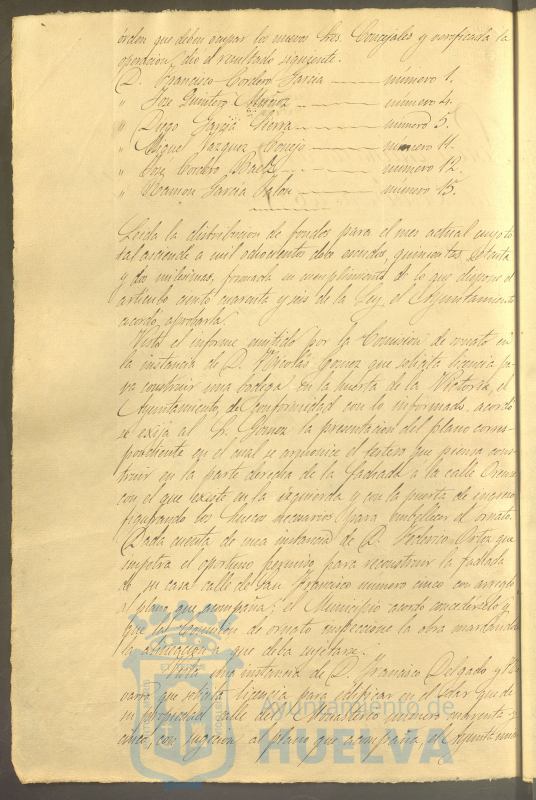 orden que deben ocupar los nuevos Sres. Concejales y verificada la
operacion, dio el resultado siguiente.
D. Francisco Cordero Garcia número 1.
" Jose Quintero Muñoz número 4.
" Diego Garcia Sierra número 5.
" Miguel Vazquez Conejo número 11.
" Jose Cordero Baez número 12.
" Ramon Garcia número 15.
Leida la distribucion de fondos para el mes actual cuyo to
tal asciende a mil ochocientos doce escudos, quinientas setenta
y dos milésimas, formada en cumplimiento de lo que dispone el
articulo ciento cuarenta y seis de la Ley, el Ayuntamiento
acordó aprobarla.
Visto el informe emitido por la Comision de ornato en
la instancia de D. Nicolás Gomez que solicita licencia pa
ra construir una bodega en la huerta de la Victoria, el
Ayuntamiento, de conformidad con lo informado, acordó
se exija al Sr. Gomez la presentacion del plano corres
pondiente en el cual se armonice el testero que piensa cons
truir en la parte derecha de la fachada a la calle
con el que existe en la izquierda y con la puerta de ingreso
figurando los huecos necesarios para embellecer el ornato.
Dada cuenta de una instancia de D. Federico Ortiz que
impetra el oportuno permiso para reconstruir la fachada
de su casa calle de San Francisco numero cinco con arreglo
al plano que acompaña; el Municipio acordó concederselo y
que la Comision de ornato inspeccione la obra marcando
la alineacion a que deba sujetarse.
Vista una instancia de D. Francisco Delgado y
que solicita licencia para edificar en el solar que de
su propiedad calle del Monasterio número cuarenta y
cinco, con sujecion al plano que acompaña, el Ayuntamien
Ayuntamiento de
HUELVA